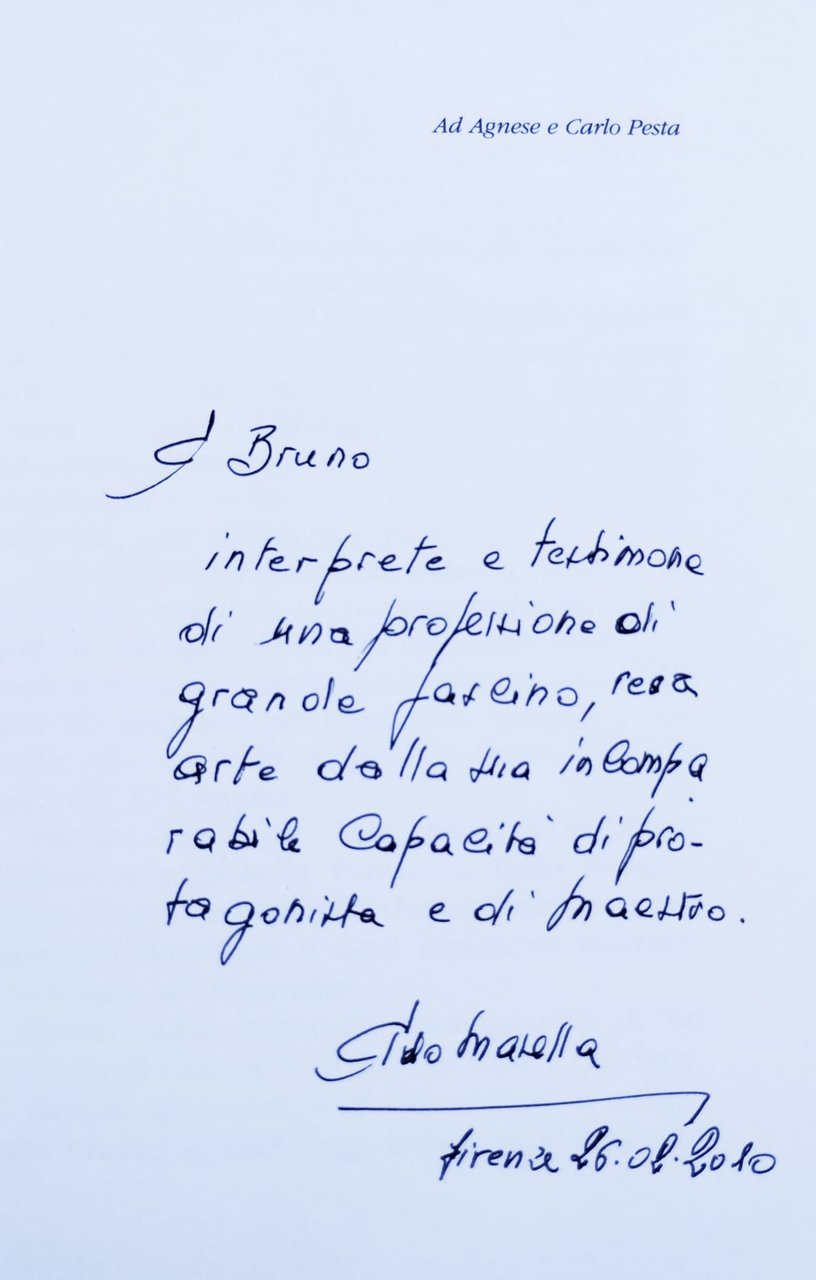 Ad Agnese e Carlo Pesta
A Bruno
interprete e testimone
di una professione di
grande fascino, resa
arte dalla sua incompa
rabile Capacità di pro-
tagonista e di maestro.
Aldo Masella
firenze 26.02.2010